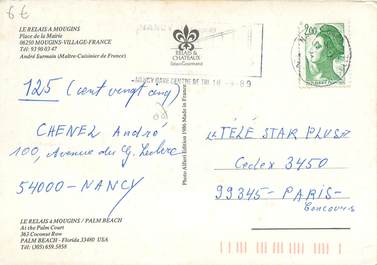 6€
LE RELAIS A MOUGINS
Place de la Mairie
06250 MOUGINS-VILLAGE-FRANCE
Tél: 93 90 03 47
André Surmain (Maître-Cuisinier de France)
NANCY
RELAIS &
CHATEAUX
Relais Gourmand
NANCY GARE CENTRE DE TRI 18 89
2,00
125 (cent vingt cinq)
CHENEL André
100, Avenue du Gl. Leclerc
54000-NANCY
Photo Alfieri Edition 1986 Made in France
TÉLÉ STAR PLUS
Cedex 3450
99345-PARIS-
CONCOURS
LE RELAIS à MOUGINS / PALM BEACH
At the Palm Court
363 Cocoanut Row
PALM BEACH - Florida 33480 USA
Tél: (305) 659.5858